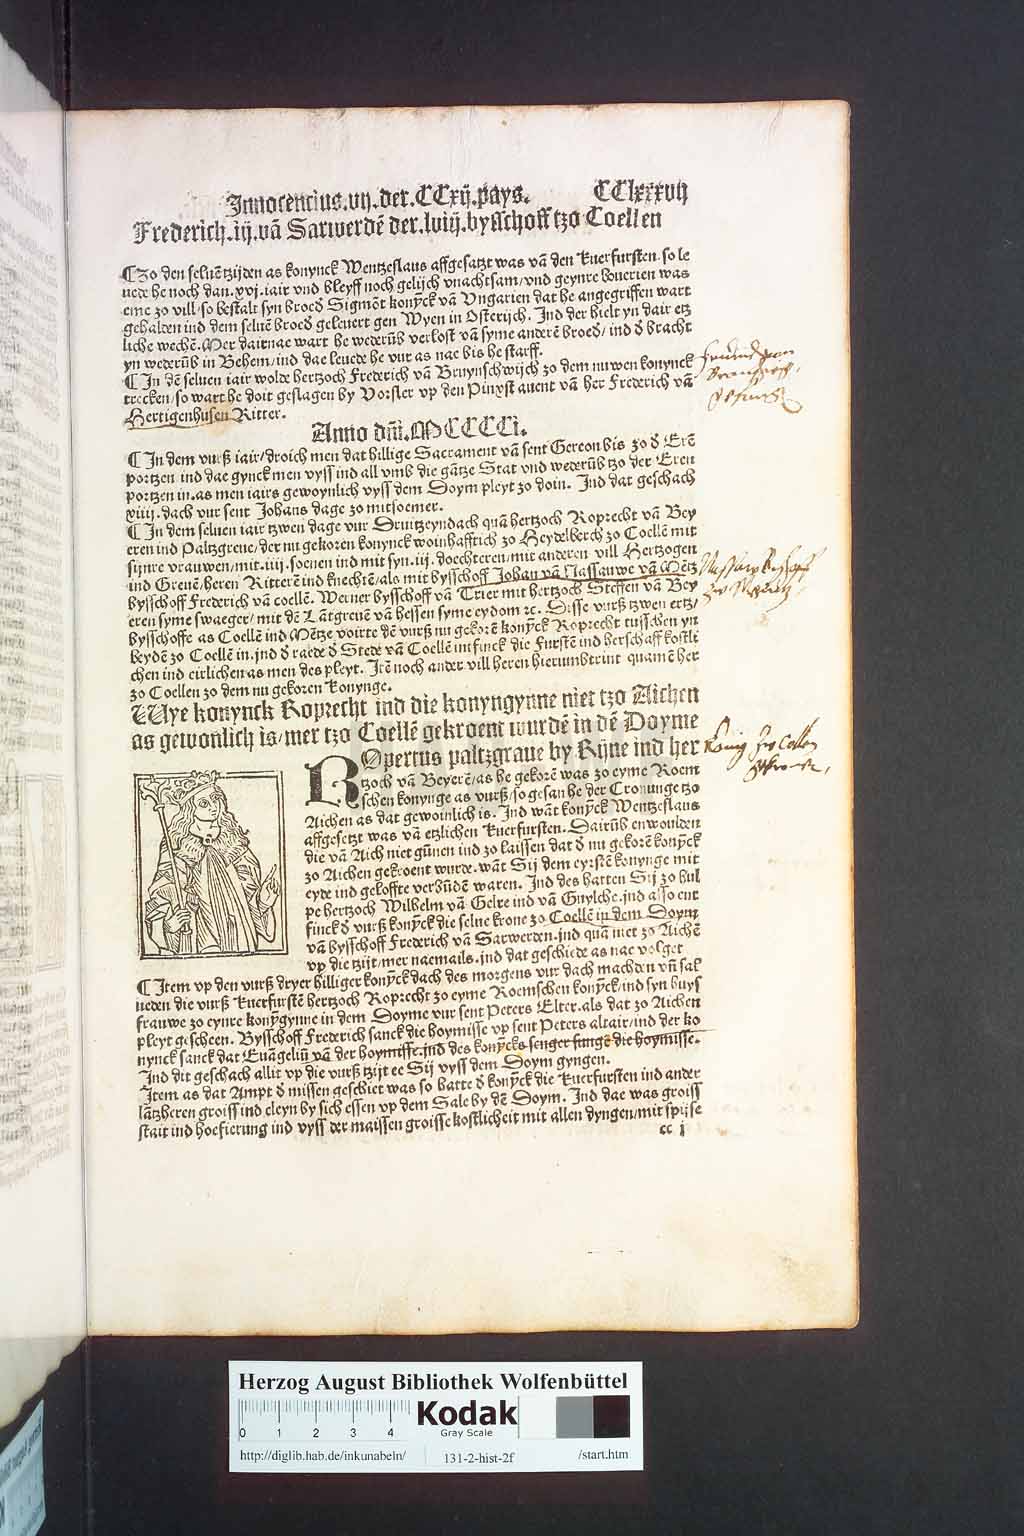 Innocencius.vij.der.CCxij.pays. CClxxxvij
Frederich.iij.vā Sarwerdē der.lviij.bysschoff tzo Coellen
¶ Zo den seluē tzijden as konynck Wentzeslaus affgesatzt was vā den kuerfursten. so le
uede he noch dan.xvj.iair vnd bleyff noch gelijch vnachtsam/vnd geynre bouerien was
eme zo vill/so bestalt syn broed Sigmōt konȳck vā Vngarien dat he angegriffen wart
gehalden ind dem seluē broed geleuert gen Wyen in Osterijch. Ind der hielt yn dair etz
liche wechē. Mer dairnae wart he wederūb verlost vā syme anderē broed/ind ď bracht
yn wederūb in Behem/ind dae leuede he vur as nae bis he starff.
¶ In dē seluen iair wolde hertzoch Frederich vā Bruynschwijch zo dem nuwen konynck
trecken/so wart he doit geslagen by Vorsler vp den Pinxst auent vā her Frederich vā
Hertigenhusen Ritter.
Anno dm̄.MCCCCi.
¶ In dem vurß iair/droich men dat hillige Sacrament vā sent Gereon bis zo ď Erē
portzen ind dae gynck men vyss ind all vmb die gātze Stat vnd wederūb tzo der Eren
portzen in.as men iairs gewoynlich vyss dem Doym pleyt zo doin. Ind dat geschach
xiiij.dach vur sent Johans dage zo mitsoemer.
¶ In dem seluen iair tzwen dage vur Druitzeyndach quā hertzoch Roprecht vā Bey
eren ind Paltzgreue/der nu gekoren konynck woinhafftich zo Heydelberch zo Coellē mit
sijnre vrauwen/mit.iiij.soenen ind mit syn.iij.doechteren/mit anderen vill Hertzogen
ind Greuē/heren Ritterē ind knechtē/als mit bysschoff Johan vā Nassauwe vā Mētz
bysschoff Frederich vā coellē. Werner bysschoff vā Trier mit hertzoch Steffen vā Bey
eren syme swaeger/mit dē Lātgreuē vā hessen syme eydom ꝛc. Disse vurß tzwen ertz/
bysschoffe as Coellē ind Mētze voirte dē vurß nu gekorē konȳck Roprecht tusschen yn
beydē zo Coellē in.ind ď raede ď Stede vā Coellē intfinck die Furstē ind herschaff kostli
chen ind eirlichen as men des pleyt. Itē noch ander vill heren hierumbtrint quamē her
zo Coellen zo dem nu gekoren konynge.
Wye konynck Roprecht ind die konyngynne niet tzo Aichen
as gewonlich is/mer tzo Coellē gekroent wurdē in dē Doyme
ROpertus paltzgraue by Rijne ind her
tzoch vā Beyerē/as he gekorē was zo eyme Roem
schen konynge as vurß/so gesan he der Cronunge tzo
Aichen as dat gewoinlich is. Ind wāt konȳck Wentzeslaus
affgesetzt was vā etzlichen kuerfursten. Dairūb enwoulden
die vā Aich niet gūnen ind zo laissen dat ď nu gekorē konȳck
zo Aichen gekroent wurde.wāt Sij dem eyrstē konynge mit
eyde ind geloffte verbūdē waren. Ind des hatten Sij zo hul
pe hertzoch Wilhelm vā Gelre ind vā Guylche.ind also ent
finck ď vurß konȳck die selue krone zo Coellē in dem Doym
vā bysschoff Frederich vā Sarwerden.ind quā niet zo Aichē
vp die tzijt/mer naemails.ind dat geschiede as nae volget
¶ Item vp den vurß dryer hilliger konȳck dach des morgens vur dach machden vn̄ sal
ueden die vurß kuerfurstē hertzoch Roprecht zo eyme Roemschen konȳck/ind syn huys
frauwe zo eynre konȳgynne in dem Doyme vur sent Peters Elter.als dat zo Aichen
pleyt gescheen. Bysschoff Frederich sanck die hoymisse vp sent Peters altair/ind der ko
nynck sanck dat Euāgeliū vā der hoymisse.ind des konȳcks senger sunge die hoymisse.
Ind dit geschach allit vp die vurß tzijt ee Sij vyss dem Doym gyngen.
Item as dat Ampt ď missen geschiet was so hatte ď konȳck die kuerfursten ind ander
lātzheren groiss ind cleyn by sich essen vp dem Sale by dē Doym. Ind dae was groiss
stait ind hoefierung ind vyss der maissen groisse kostlicheit mit allen dyngen/mit spijse
cc j
König zo Collen
Herzog August Bibliothek Wolfenbüttel
0 1 2 3 4
Kodak
Gray Scale
http://diglib.hab.de/inkunabeln/ 131-2-hist-2f /start.htm